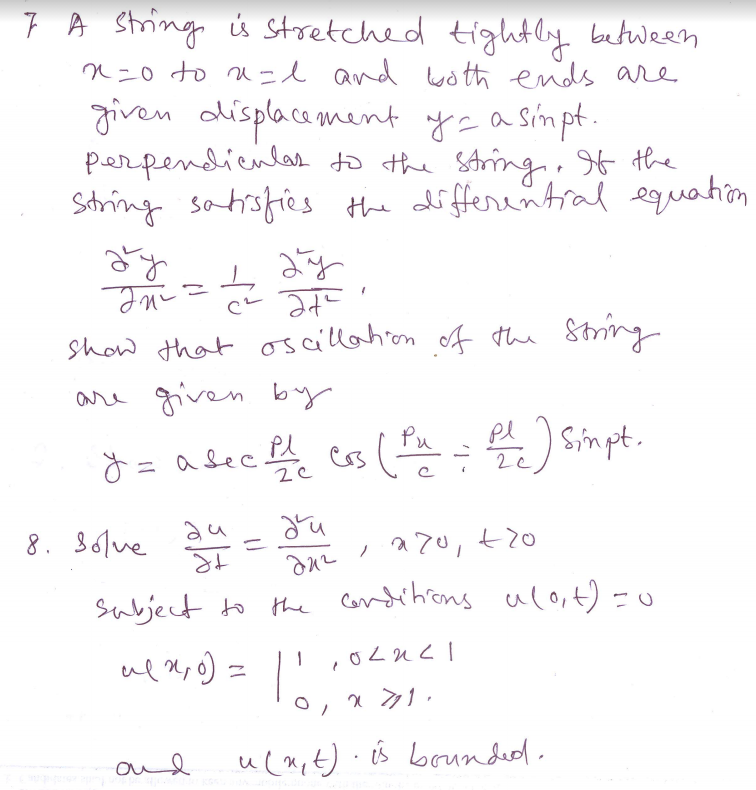 7 A string is stretched tightly between
x=0 to x=l and both ends are
given displacement y = a sin pt.
perpendicular to the string. If the
string satisfies the differential equation
∂²y/∂x² = 1/c² ∂²y/∂t² ,
show that oscillation of the string
are given by
y = a sec pl/2c cos (px/c ÷ pl/2c) sin pt.
8. Solve ∂u/∂t = ∂²u/∂x² , x>0, t>0
subject to the conditions u(0,t) = 0
u(x,0) = | 1 , 0<x<1
0, x ≥ 1.
and u(x,t) . is bounded.